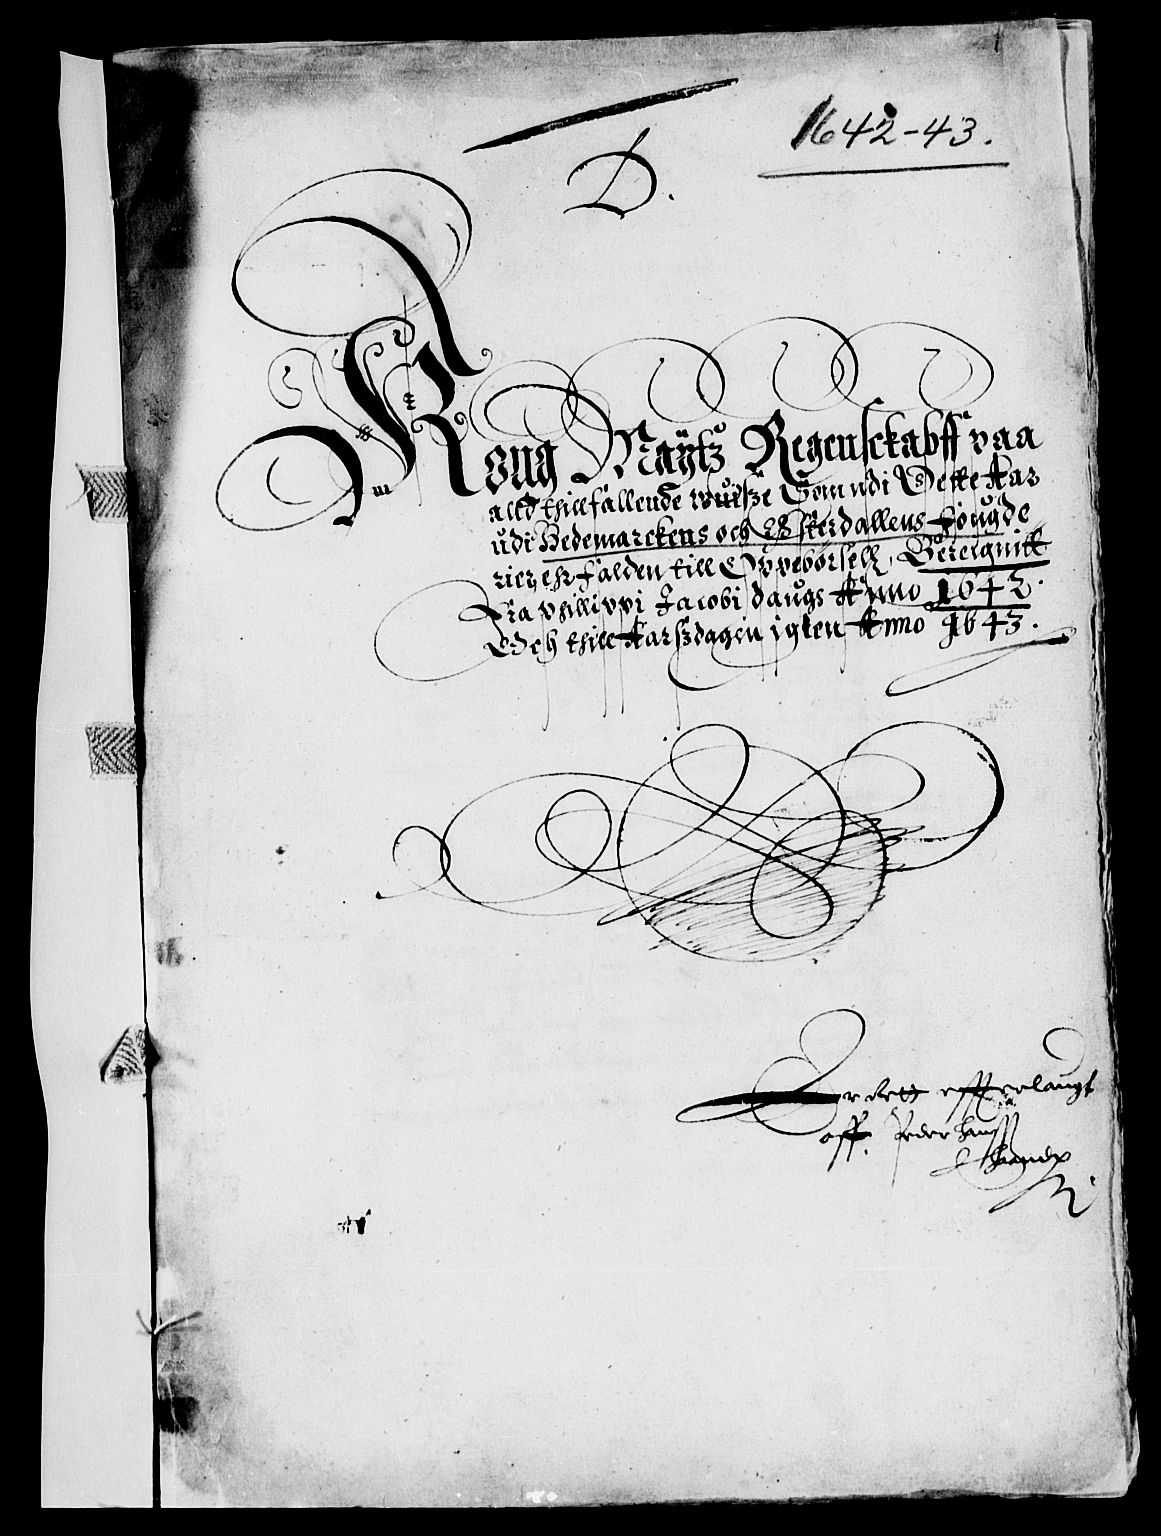 1642-43.
D.
Kong Maÿtz Regenskabff paa
alld thillfallende wisße Som udi Dette Aar
udi Hedemarckens och Østerdallens fougde
rier ehr falden till Oppebørsell, Bereignitt
Fra phillippi Jacobi daugs Anno 1642.
Och thill Aarsdagen igien Anno 1643.
Er rett offuerlangt
aff. Peder